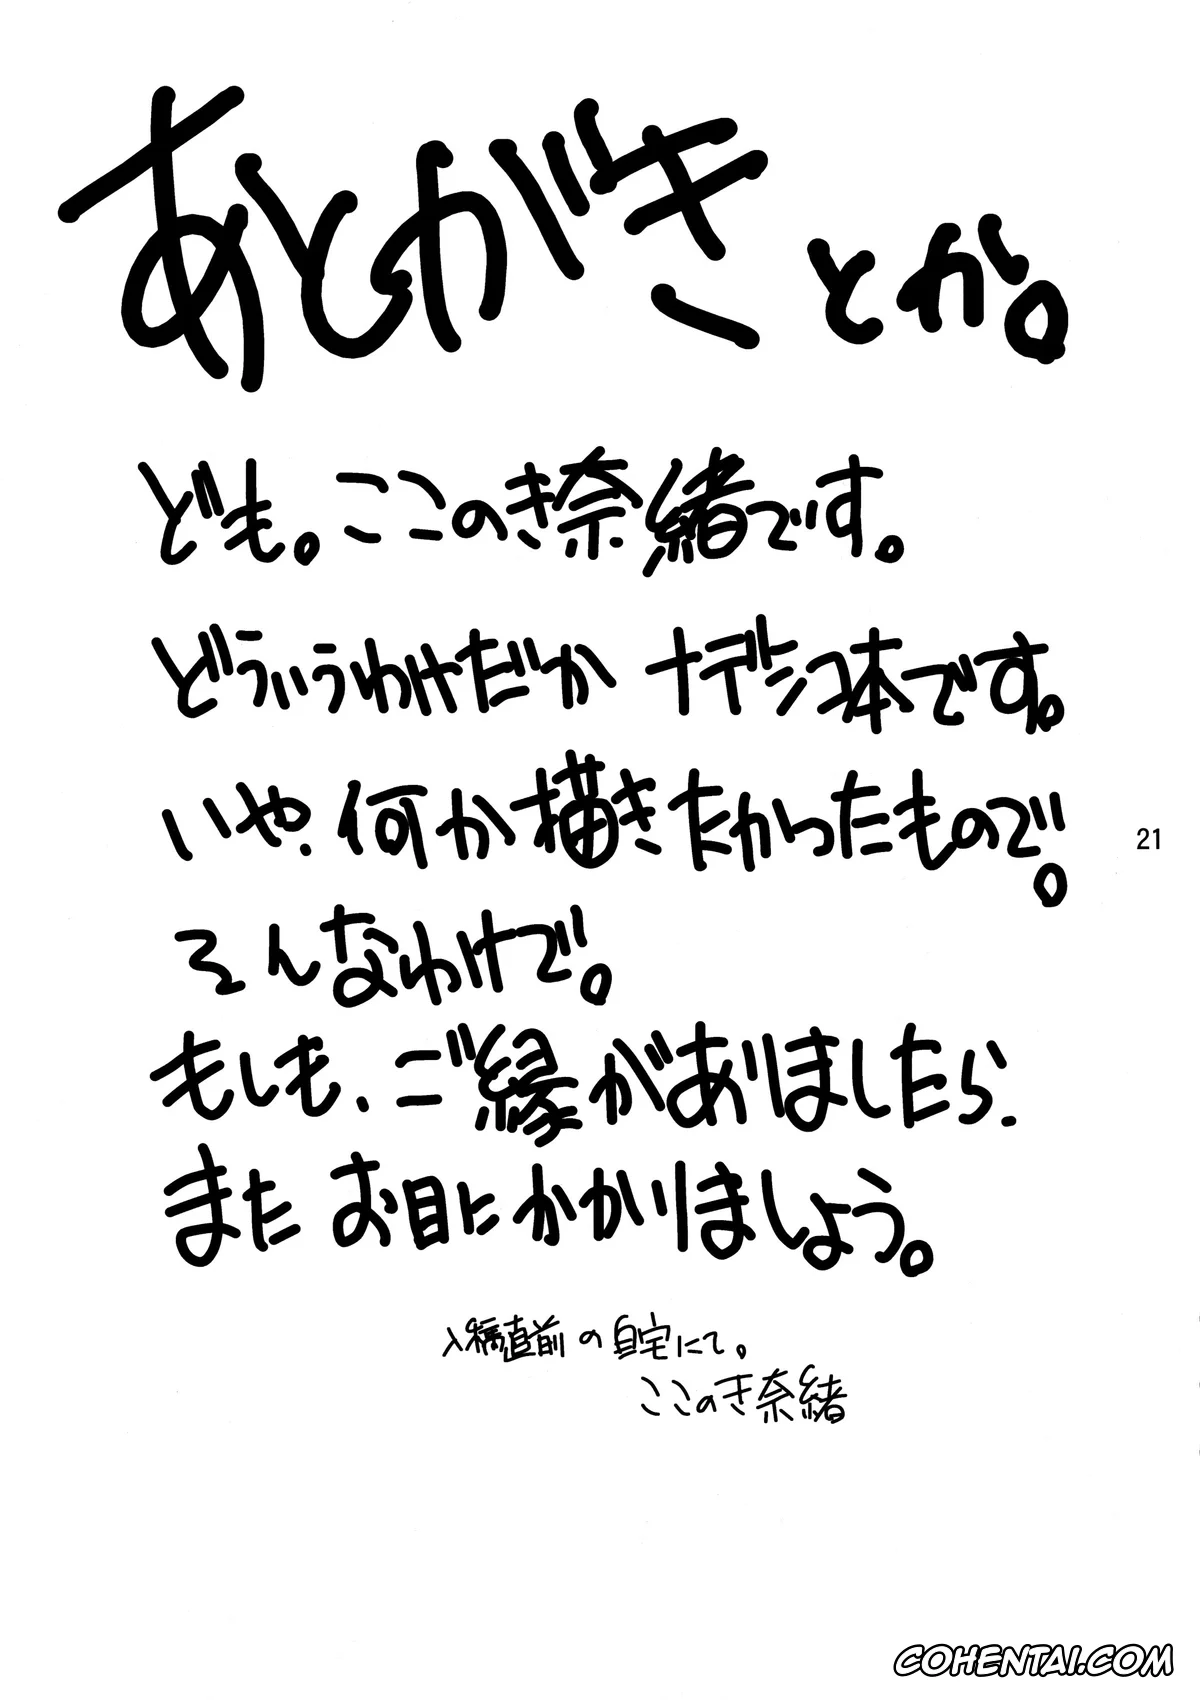 あとがきとか。
ども。ここのき奈緒です。
どういうわけだか ナデシコ本です。
いや、何か描きたかったもので。
そんなわけで。
もしも、ご縁がありましたら、
また お目にかかりましょう。
入稿直前の自宅にて。
ここのき奈緒
21
COHENTAI.COM